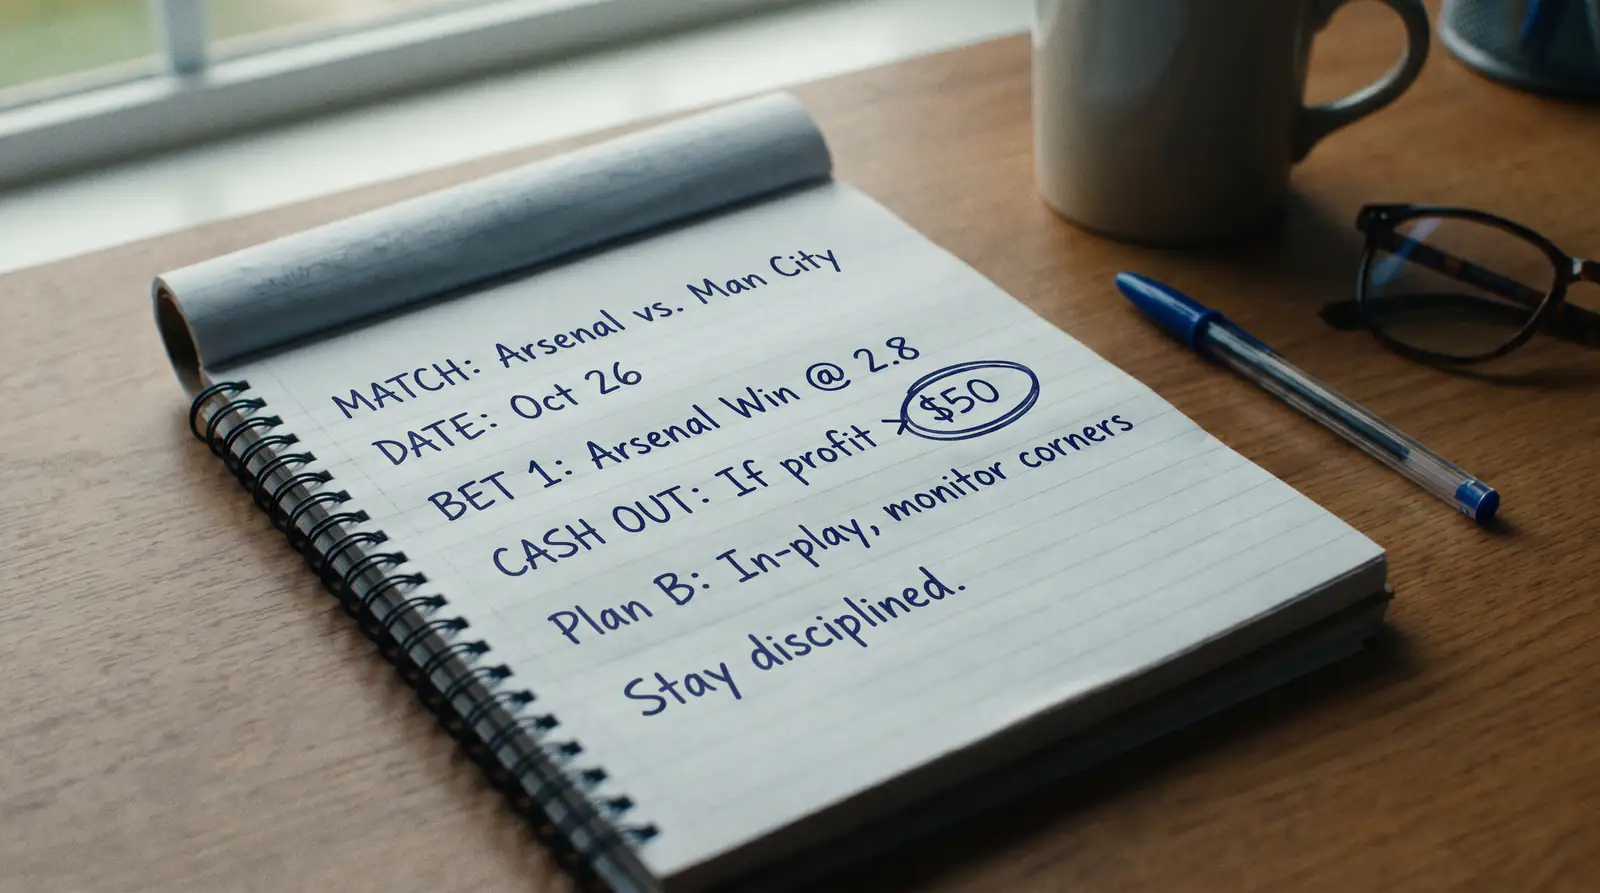 MATCH: Arsenal vs. Man City
DATE: Oct 26
BET 1: Arsenal Win @ 2.8
CASH OUT: If profit > $50
Plan B: In-play, monitor corners
Stay disciplined.